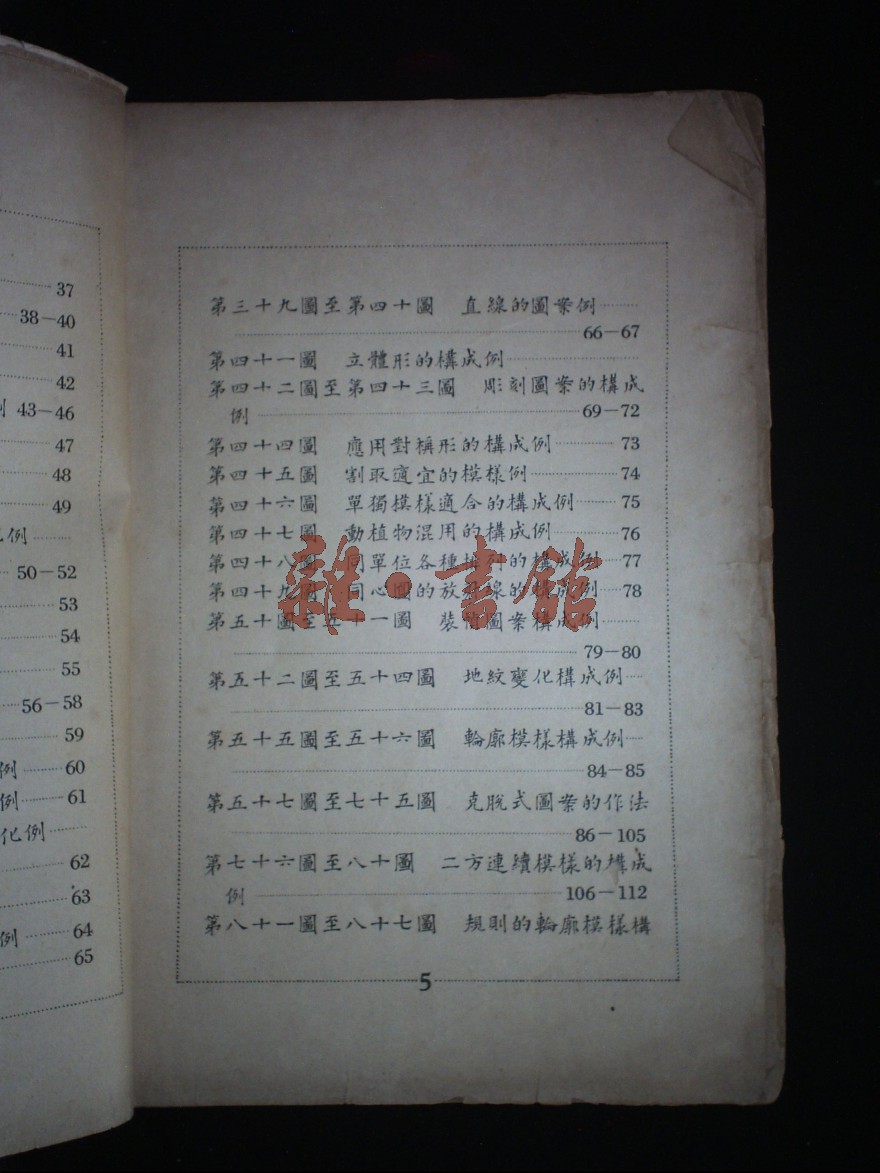 37
38—40
41
42
43—46
47
48
49
例
50—52
53
54
55
56—58
59
例 60
例 61
化例
62
63
例 64
65
第三十九圖至第四十圖 直線的圖案例
66—67
第四十一圖 立體形的構成例
第四十二圖至第四十三圖 彫刻圖案的構成
例 69—72
第四十四圖 應用對稱形的構成例 73
第四十五圖 割取適宜的模樣例 74
第四十六圖 單獨模樣適合的構成例 75
第四十七圖 動植物混用的構成例 76
第四十八圖 同單位各種排列的構成例 77
第四十九圖 同心圓的放射線的構成例 78
第五十圖至五十一圖 裝飾圖案構成例
79—80
第五十二圖至五十四圖 地紋變化構成例
81—83
第五十五圖至五十六圖 輪廓模樣構成例
84—85
第五十七圖至七十五圖 克脫式圖案的作法
86—105
第七十六圖至八十圖 二方連續模樣的構成
例 106—112
第八十一圖至八十七圖 規則的輪廓模樣構
5
雜·書館